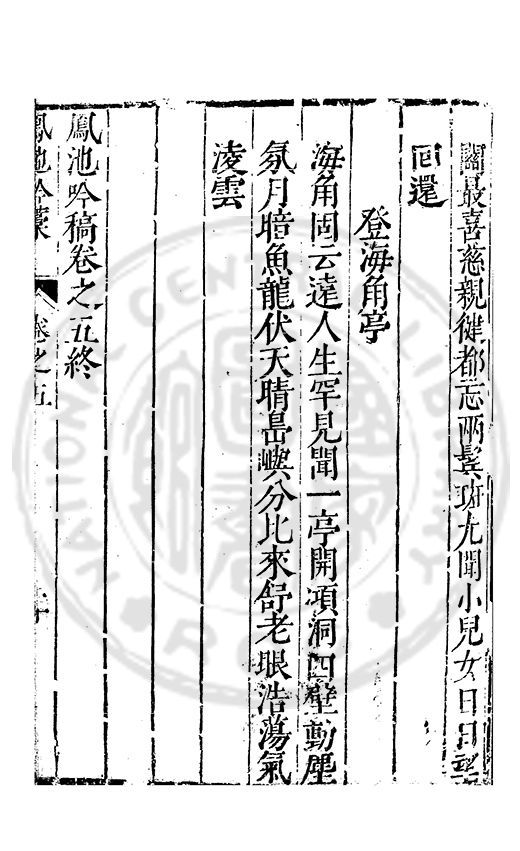 關最喜慈親健都忘兩鬂斑尤聞小兒女日日望
回還
登海角亭
海角固云遠人生罕見聞一亭開澒洞四壁動塵
氛月暗魚龍伏天晴島嶼分比來舒老眼浩蕩氣
淩雲
鳳池吟稿卷之五終
鳳池吟藁
卷之五
CENTRAL
LIBRARY
NATIONAL